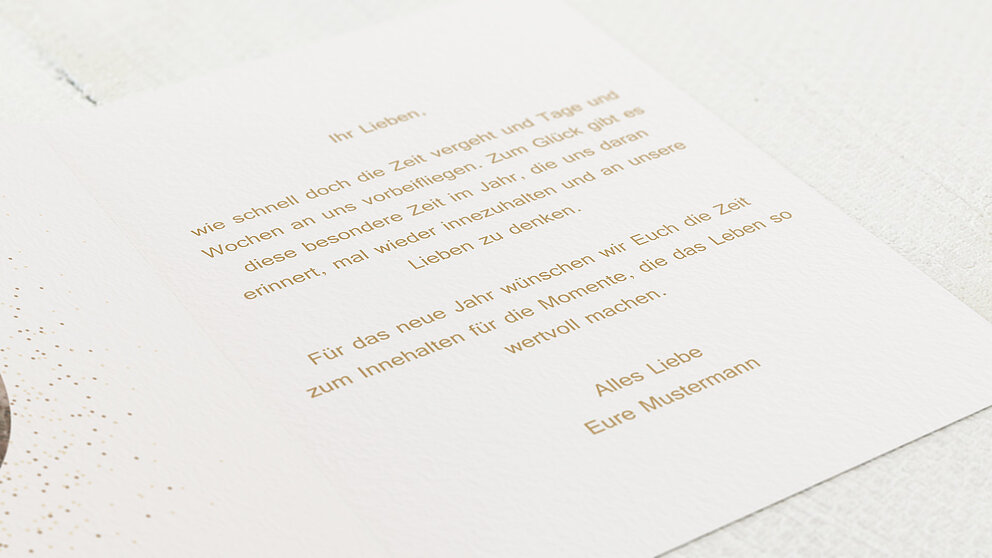 Ihr Lieben,
wie schnell doch die Zeit vergeht und Tage und
Wochen an uns vorbeifliegen. Zum Glück gibt es
diese besondere Zeit im Jahr, die uns daran
erinnert, mal wieder innezuhalten und an unsere
Lieben zu denken.
Für das neue Jahr wünschen wir Euch die Zeit
zum Innehalten für die Momente, die das Leben so
wertvoll machen.
Alles Liebe
Eure Mustermann